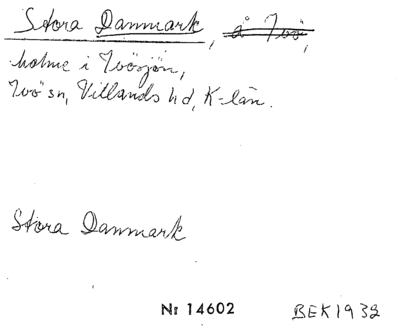 Stora Danmark, å Ivö,
holme i Ivösjön,
Ivö sn, Villands hd, K-län.
Stora Danmark
Nr 14602 BEK 1932